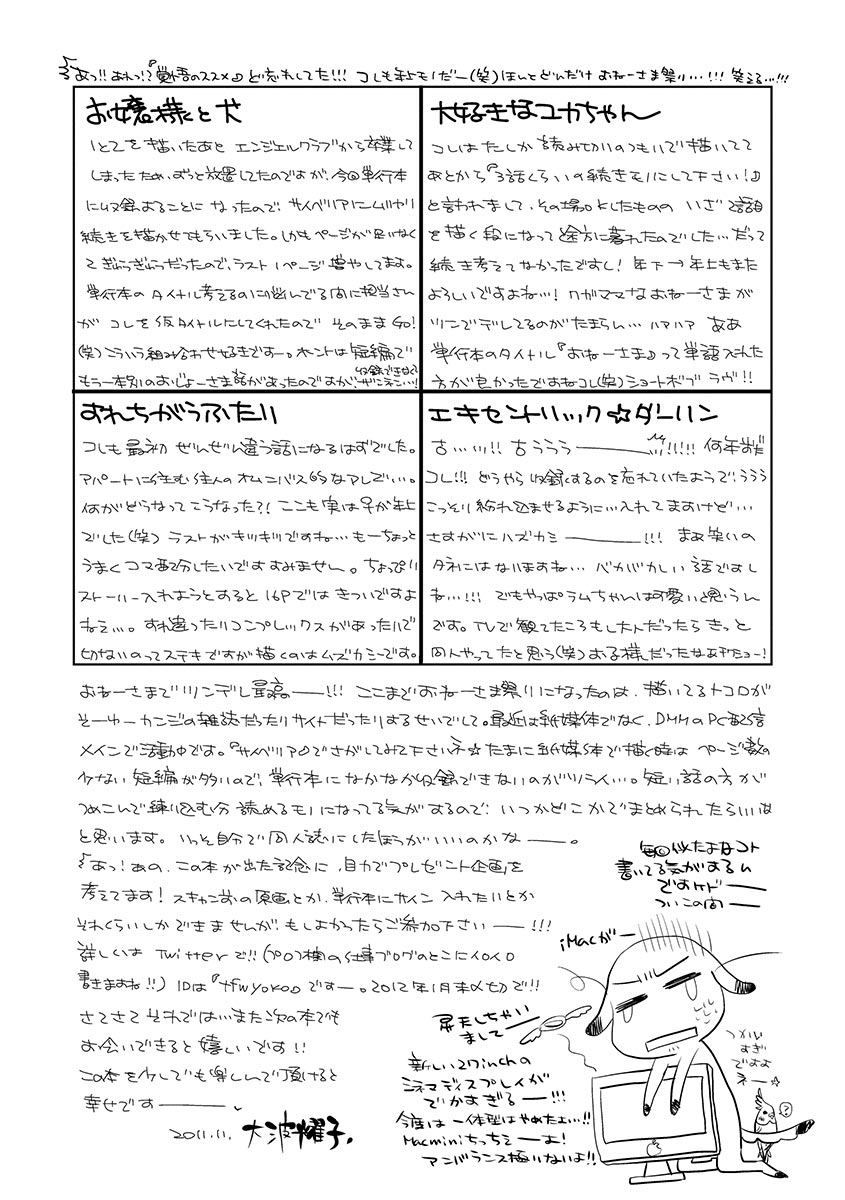 あっ!! あれっ!?『覚悟のススメ』ど忘れしてた!!! コレも年上モノだー(笑)ほんとどんだけ おねーさま祭り…!!! 笑える…!!!
お嬢様と犬
1と2を描いたあと エンジェルクラブから卒業して
しまったため、ずっと放置してたのですが、今回単行本
に収録することに なったので、サイベリアにムリヤリ
続きを描かせてもらいました。しかもページが足りなく
てぎゅうぎゅうだったので、ラスト1ページ増やしてます。
単行本のタイトル考えるのに悩んでる間に担当さん
が コレを仮タイトルにしてくれたので そのままGo!
(笑)こういう組み合わせ好きですー。ホントは短編で
もう一本別のおじょーさま話があったのですが、収録できなくてザンネン…!
大好きなユカちゃん
コレはたしか読み切りのつもりで描いてて
あとから『3話くらいの続きモノにして下さい!』
と言われまして、その場OKしたものの いざ2話目
を描く段になって途方に暮れたのでした…だって
続き考えてなかったですし! 年下→年上もまた
よろしいですよね…! ワガママなおねーさまが
ツンでデレしてるのがたまらん… ハァハァ ああ
単行本のタイトル『おねーさま』って単語入れた
方が良かったですねコレ(笑)ショートボブ ラヴ!!
すれちがうふたり
コレも最初 ぜんぜん違う話になるはずでした。
アパートに住む住人のオムニバス的なアレでして…。
何がどうなってこうなった?! ここも実は♀が年上
でした(笑) ラストがキツキツですね… もーちょっと
うまくコマ配分したいですすみません。ちょっぴり
ストーリー入れようとすると16Pではきついですよ
ねぇ…。すれ違ったりコンプレックスがあったりで
切ないのってステキですが描くのはムズカシーです。
エキセントリック☆ダーリン
古…ッ!! 古ううう―――ッ!!!!! 何年前だ
コレ!!! どうやら収録するのを忘れていたようで、ううう
こっそり紛れ込ませるように…入れてますけど…
さすがにハズカシ―――!!! まあ笑いの
タネにはなりますね… バカバカしい話ですし
ね…!!! でもやっぱラムちゃんは可愛いと思うん
です。TVで観てたころもし大人だったらきっと
同人やってたと思う(笑)
おねーさまでツンデレ最高の――!!! ここまでおねーさま祭りになったのは、描いてるトコロが
そーゆーカンジの雑誌だったりサイトだったりするせいでして。最近は紙媒体でなく、DMMのPC配信
メインで活動中です。『サイベリア』でさがしてみて下さいネ☆たまに紙媒体で描く時は ページ数の
少ない短編が多いので、単行本になかなか収録できないのがツライ…。短い話の方が
つめこんで練り込む分 読めるモノになってる気がするので いつかどこかでまとめられたらいいな
と思います。いっそ自分で同人誌にしたほうがいいのかな――。
あっ!あの、この本が出た記念に、自力でプレゼント企画を
考えてます! スキャン前の原画とか、単行本にサイン入れたりとか
それくらいしかできませんが、もしよかったらご参加下さい――!!!
詳しくは Twitterで!!(プロフ欄の仕事ブログのとこにイロイロ
書きますね!!) IDは『tfwyoko』ですー。2012年1月末〆切で!!
さてさて それでは…また次の本でも
お会いできると嬉しいです!!
この本を少しでも楽しんで頂けると
幸せです―――。
2011.11. 大波耀子.
毎回似たよなコト
書いてる気がするん
ですケド――
ついこの間――
iMacが――
昇天しちゃい
まして――
新しい27inchの
シネマディスプレイが
でかすぎる――!!!
今度は一体型はやめたよ…!!
Macminiちっちぇ――よ!
アンバランス極いないよ!!
つかい
すぎ
ですよ
ネー☆
?